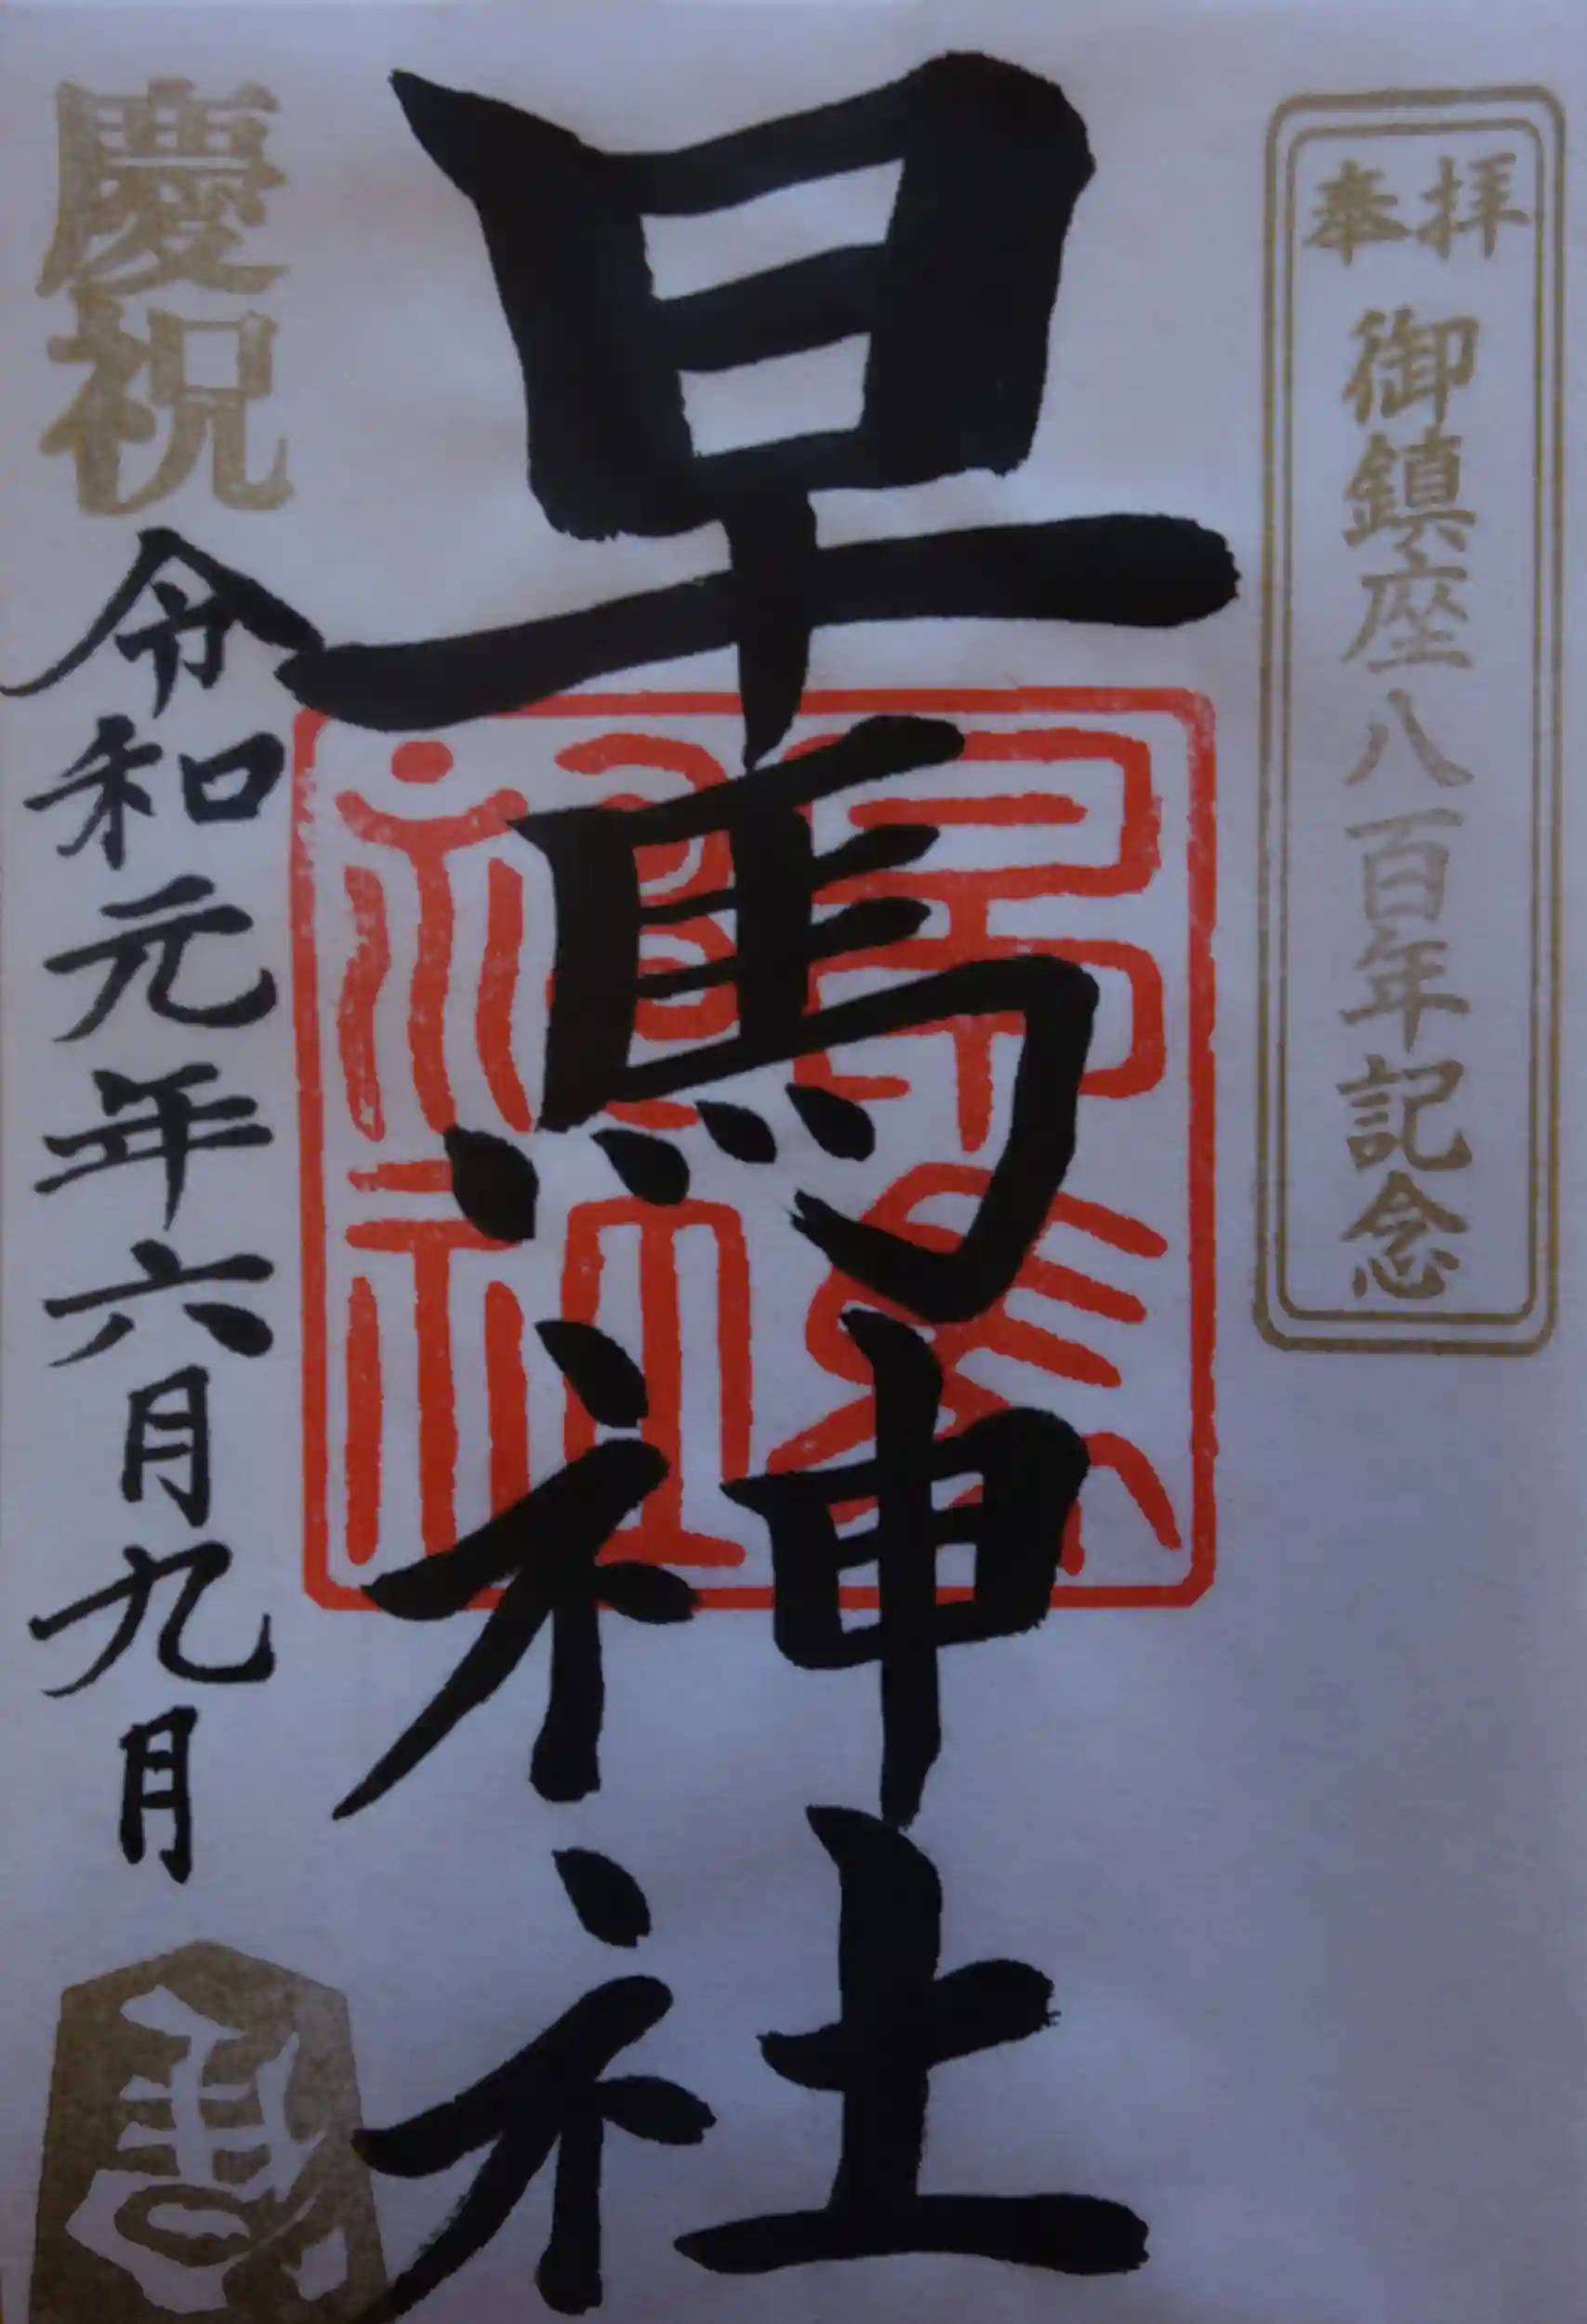 奉拝
御鎮座八百年記念
早馬神社
早馬神社
慶祝
令和元年六月九月